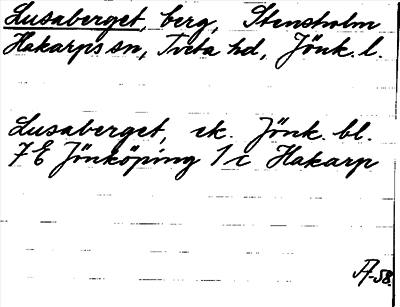 Lusaberget, berg, Stensholm
Hakarps sn, Tveta hd, Jönk. l.
Lusaberget, ek. Jönk. bl.
7E Jönköping 1c Hakarp
A-58.